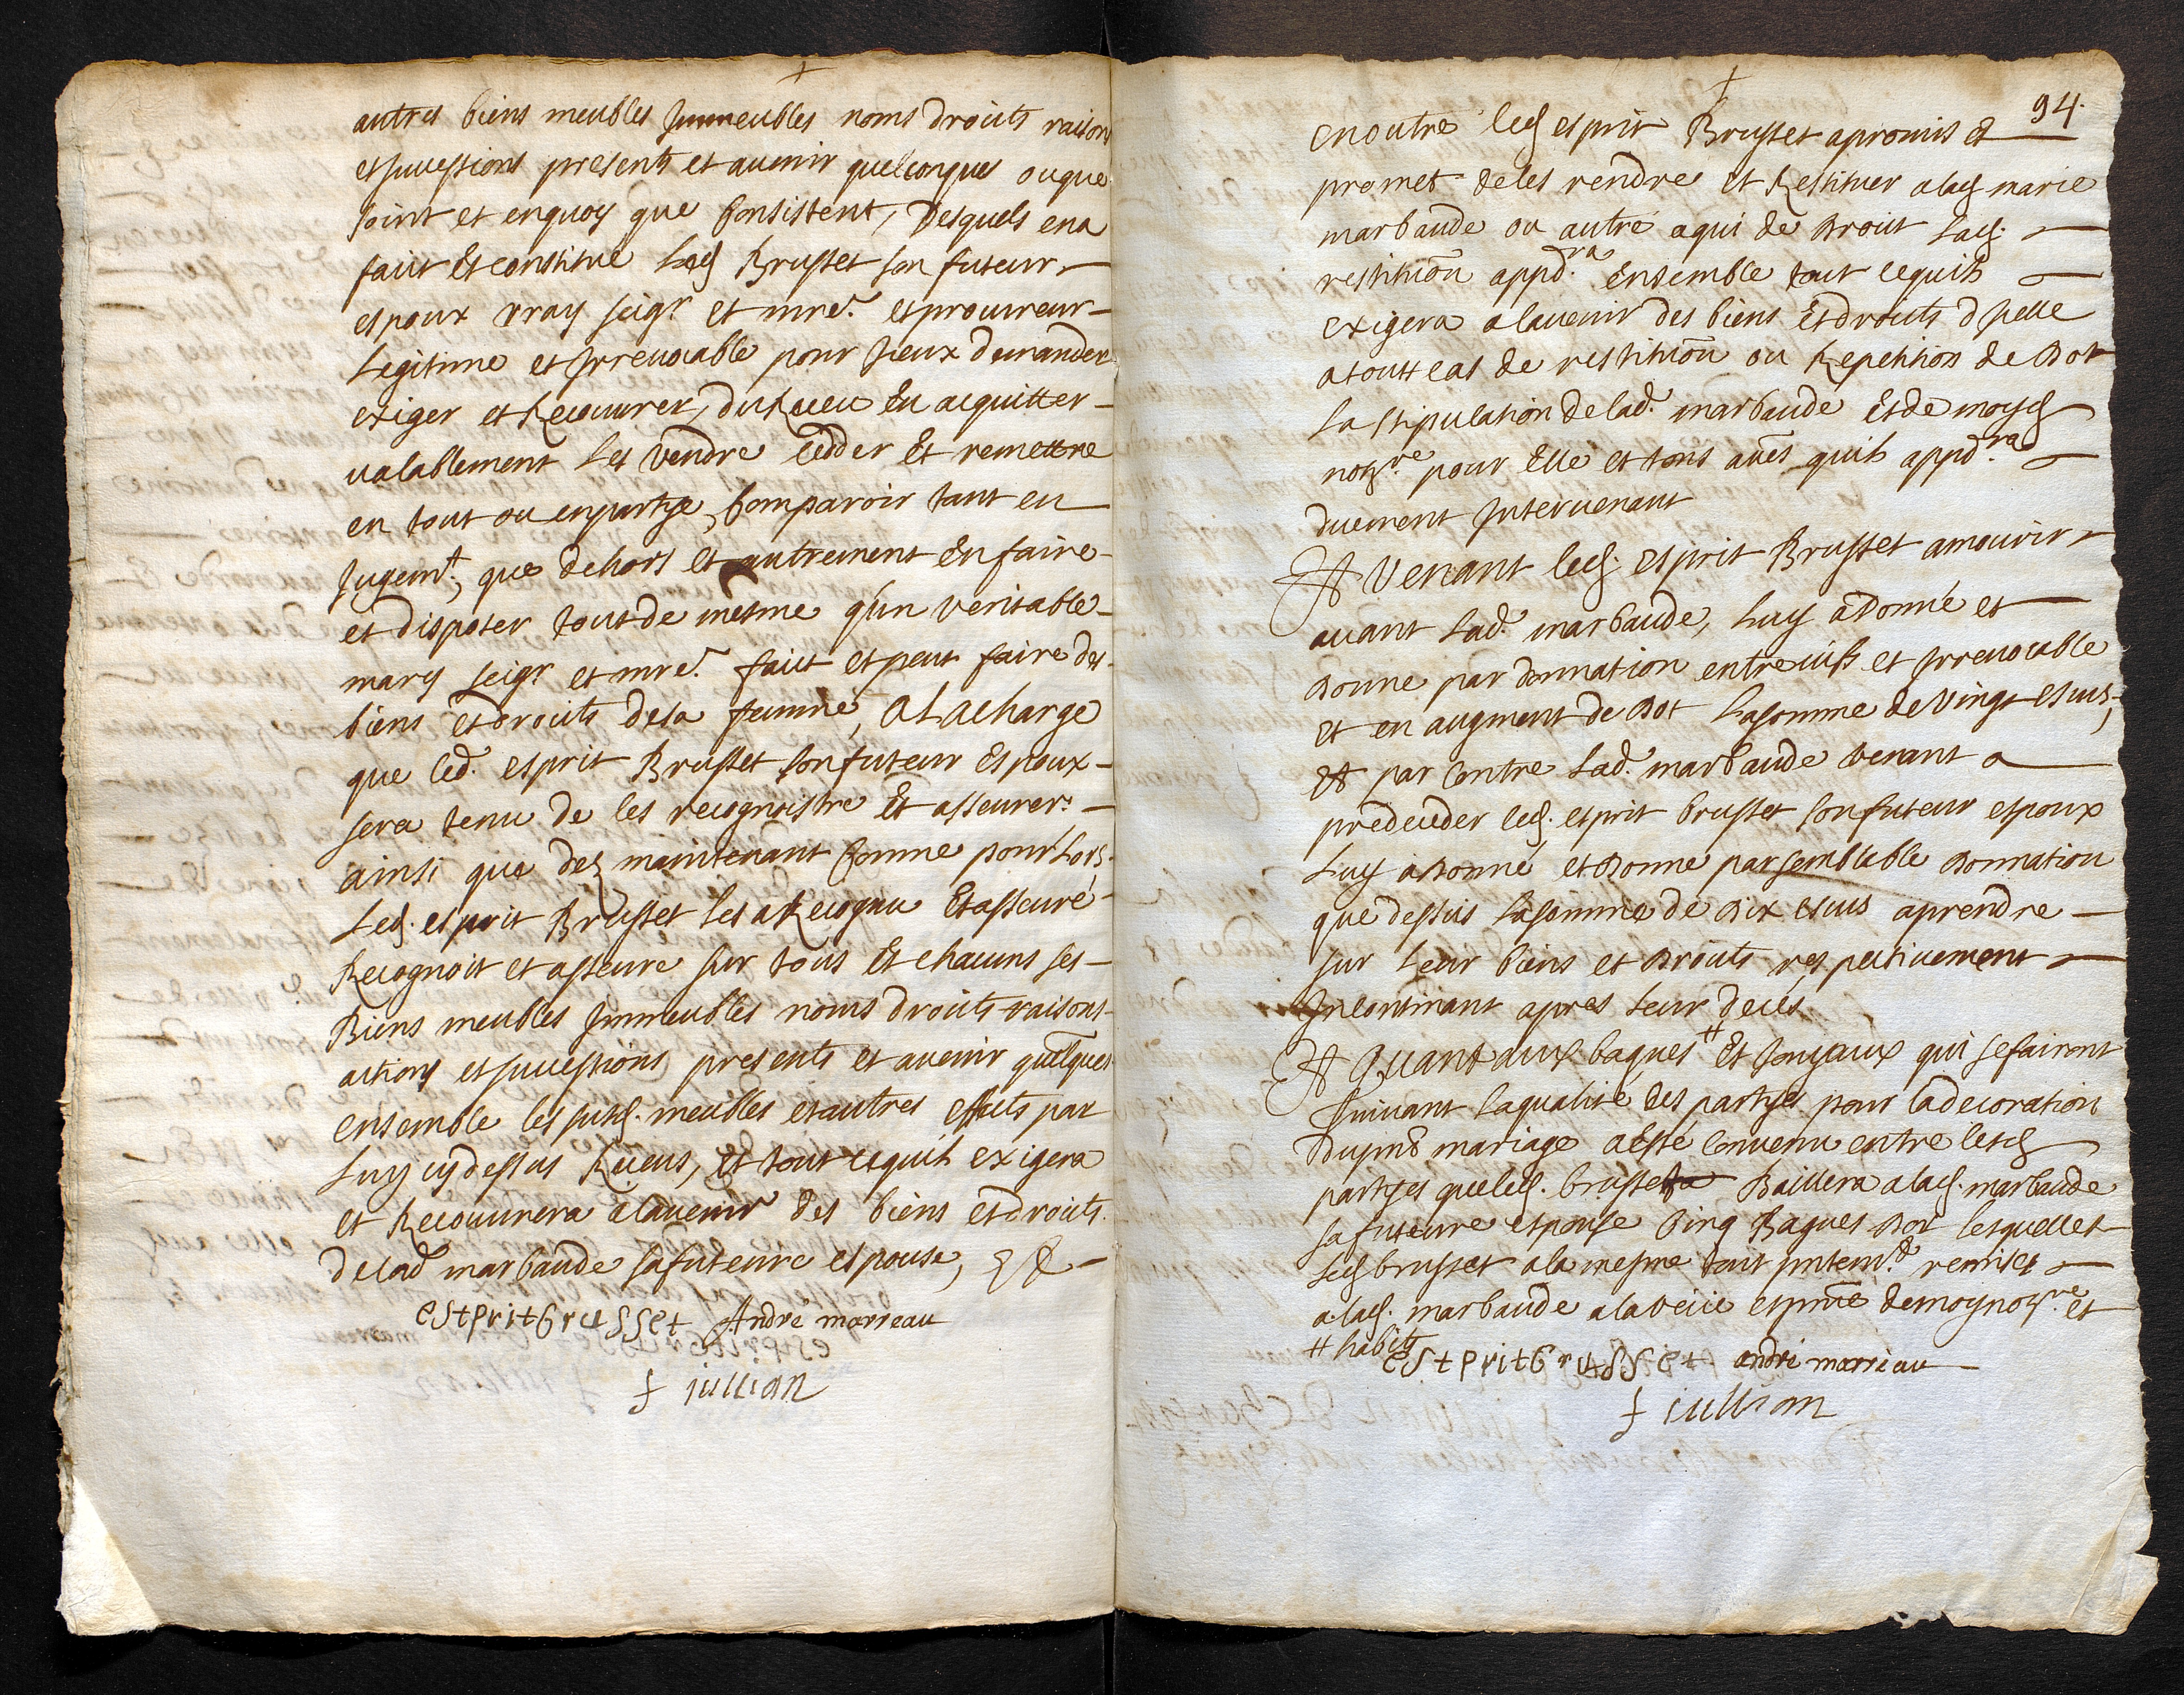 autres biens meubles Jmmeubles noms droits raison
et successions presents et avenir quelconques ou que
soint et enquoy que Consistent, Desquels en a
fait Et constitué Led Brusset son futeur
espoux vray seigr et mre. et procureur
Legitime et Jrrevocable pour Jceux demander
exiger et Recouvrer, du Receu En acquitter
valablement Les Vendre cedder Et remettre
en tout ou en partye, Comparoir tant en
Jugemt., que dehors et autrement En faire
et disposer tout de mesme qu'un veritable
mary seigr et mre. fait et peut faire des
biens et droits de sa femme, A La charge
que led. esprit Brusset son futeur Espoux
sera tenu de les recognoistre Et asseurer.
ainsi que dez maintenant Comme pour Lors,
Led. esprit Brusset les a Recognu Et asseuré
Recognoit et asseure sur tous Et chacuns ses
Biens meubles Jmmeubles noms droits raisons
actions et successions presents et avenir quelques
Ensemble les susd. meubles et autres effaits par
Luy cy dessus Receus, Et tout ce quil exigera
et Recouvrera a lavenir des biens et droits.
de lad marbaude sa futeure espouse, Et
estprit brusset André marreau
f jullian
94.
en outre led esprit Brusset a promis et
promet de les rendre et Restituer a lad marie
marbaude ou autre a qui de Droit Lad.
restituon appd.ra Ensemble tout ce quil
exigera a lavenir des biens Et droits d'Jcelle
a toutt cas de restituon ou Repetition de Dot
La stipulation de lad. marbaude Et de moyd
notre pour Elle et tous aues quil appd.ra
duement Jntervenant
Et Venant led. esprit Brusset a mourir
avant Lad. marbaude, Luy a Donné et
Donne par donnation entre vifs et Jrrevocable
Et en augment de Dot La somme de Vingt escus,
Et par Contre Lad. marbaude venant a
predecedder led. esprit brusset son futeur espoux
Luy a Donné et Donne par semblable Donnation
que dessus La somme de Dix escus a prendre
sur Leur biens et Droits respectivement
Jncontinant apres Leur deces
Et Quant aux bagues # Et Joyaux qui se fairont
suivant La qualité des partyes pour La decoration
du pnt mariage a esté Convenu entre lesd
partyes que led. brusset Baillera a lad. marbaude
sa futeure espouse Cinq Bagues Dor lesquelles
Led brusset a la mesme tout pntemt. remises
a lad. marbaude a la veue et pnce de moy notre et
# habits
estprit brusset andré marreau
f jullian